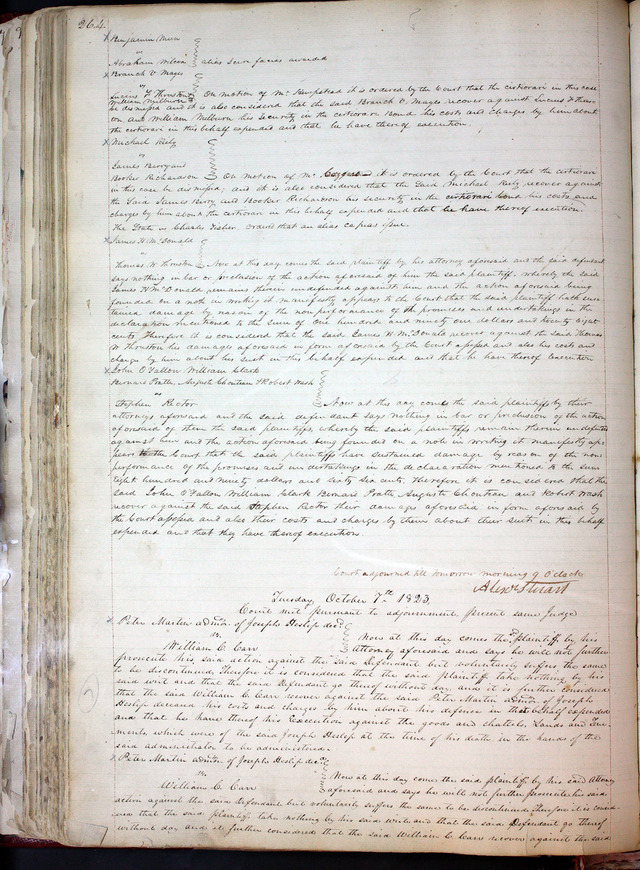 264
x Benjamin
vs
Abraham Wilson alias Scire facias awarded
x Branch V Mage
vs
Lucius F Thruston & On motion of Mr Hempstead it is ordered by the Court that the certiorari in this case
William Milburn
be dismissed and it is also considered that the said Branch V. Mages recover against Lucius F Thrus-
ton and William Milburn his security in the certiorari Bond his costs and charges by him about
the certiorari in this behalf expended and that he have thereof execution.
x Michael Kiely
vs
James Berry and
Booker Richardson On motion of Mr it is ordered by the Court that the certiorari
in this case be dismissed, and it is also considered that the Said Michael Kiely recover against
the Said James Berry and Booker Richardson his security in the certiorari Bond his costs and
charges by him about the certiorari in this behalf expended and that he have thereof execution.
The State vs Charles Fisher, ordered that an alias capias issue.
x James H McDonald
vs
Thomas W Thruston Now at this day comes the said plaintiff by his attorney aforesaid and the said defendant
says nothing in bar or preclusion of the action aforesaid of him the said plaintiff, whereby the said
James H McDonald remains therein undefended against him and the action aforesaid being
founded on a note in writing it manifestly appears to the Court that the said plaintiff hath sus-
tained damage by reason of the non performance of the promises and undertakings in the
declaration mentioned to the Sum of One hundred and ninety one dollars and twenty eight
cents Therefore it is considered that the said James H McDonald recover against the said Thomas
W Thruston his damages aforesaid in form aforesaid by the Court assessed and also his costs and
charges by him about his suit in this behalf expended and that he have thereof Execution
x John O Fallon William Clark
Bernard Pratte, August Chouteau & Robert Wash
vs
Stephen Rector Now at this day comes the said plaintiffs by their
attorney aforesaid and the said defendant says nothing in bar or preclusion of the action
aforesaid of them the said plaintiffs, whereby the said plaintiffs remain therein undefended
against him and the action aforesaid being founded on a note in writing it manifestly ap-
pears to the Court that the said plaintiffs have sustained damage by reason of the non
performance of the promises and undertakings in the declaration mentioned to the sum
eight hundred and ninety dollars and sixty six cents. Therefore it is considered that the
said John O Fallon William Clark Bernard Pratte Auguste Chouteau and Robert Wash
recover against the said Stephen Rector their damages aforesaid in form aforesaid by
the Court assessed and also their costs and charges by them about their suit in this behalf
expended and that they have thereof execution.
Court adjourned till tomorrow morning 9 O'clock
Alexr Stuart
Tuesday October 7th 1823,
Court met pursuant to adjournment, present same Judge
x Peter Martin admr. of Joseph Heslep decd.
vs.
William C. Carr
Now at this day comes the Plaintiff by his
Attorney aforesaid and says he will not further
prosecute his said action against the said Defendant but voluntarily suffers the same
to be discontinued, Therefore it is considered that the said plaintiff take nothing by his
said writ and that the said Defendant go thereof without day and it is further considered
that the said William C Carr recover against the said Peter Martin admr. of Joseph
Heslep deceased his costs and charges by him about his defense in that behalf expended
and that he have thereof his Execution against the goods and chattels, Lands and Tene-
ments, which were of the said Joseph Heslep at the time of his death in the hands of the
said administrator to be administered.
x Peter Martin admr. of Joseph Heslep decd.
vs.
William C. Carr
Now at this day comes the said plaintiff by his said Attorney
aforesaid and says he will not further prosecute his said
action against the said defendant but voluntarily suffers the same to be discontinued. Therefore it is consid-
ered that the said plaintiff take nothing by his said writ and that the said Defendant go thereof
without day and it further considered that the said William C. Carr recover against the said